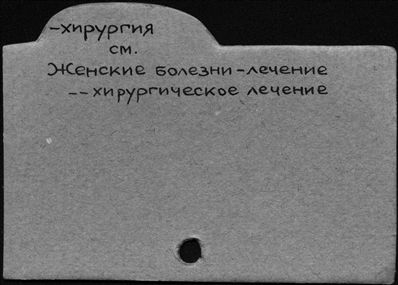 -хирургия
см.
Женские болезни-лечение
--хирургическое лечение